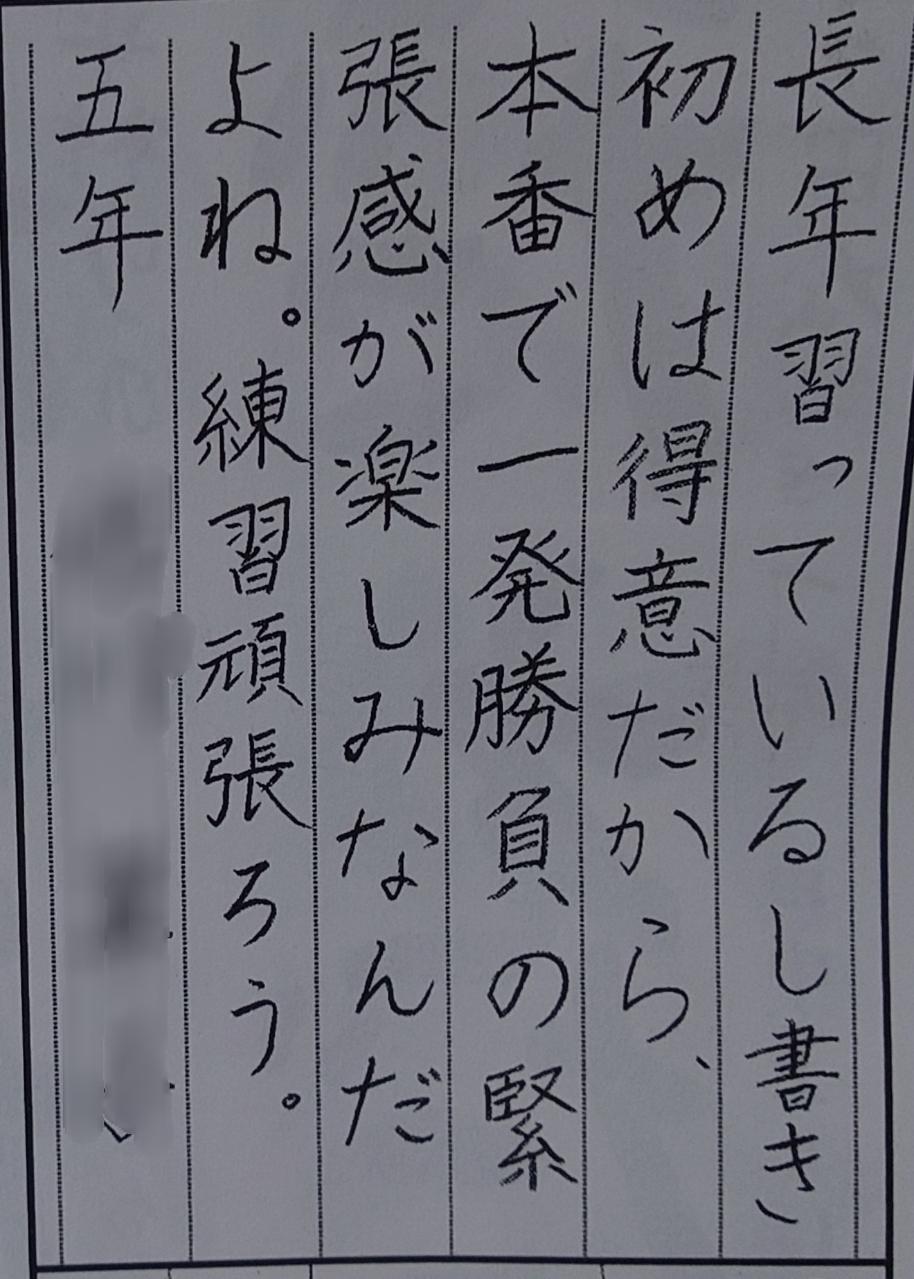 長年習っているし書き
初めは得意だから、
本番で一発勝負の緊
張感が楽しみなんだ
よね。練習頑張ろう。
五年